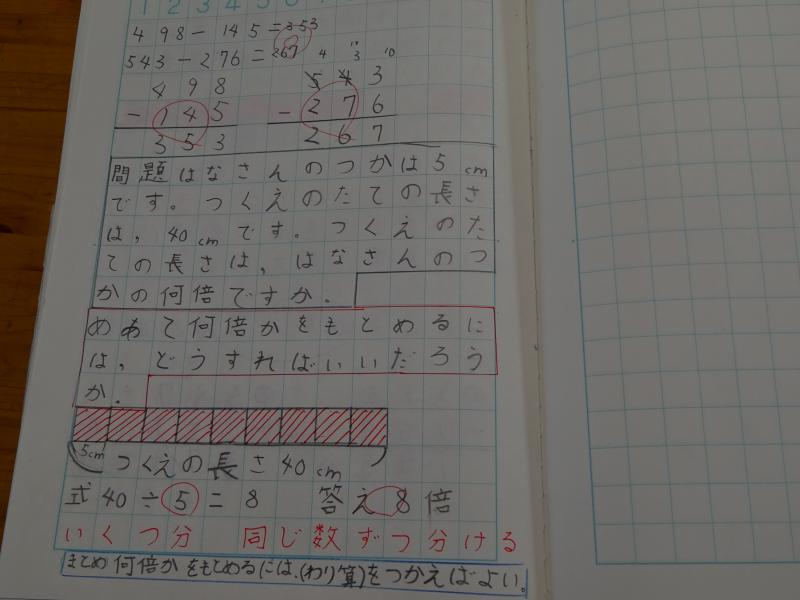 1 2 3 4 5
498-145=353
543-276=267
4 13 10
498
543
-145
-276
353
267
問題はなさんのつかは5cm
です。つくえのたての長さ
は,40cmです。つくえのた
ての長さは,はなさんのつ
かの何倍ですか.
めあて何倍かをもとめるに
は,どうすればいいだろう
か.
5cm
つくえの長さ40cm
式40÷5=8 答え8倍
いくつ分 同じ数ずつ分ける
まとめ何倍かをもとめるには、(わり算)をつかえばよい。